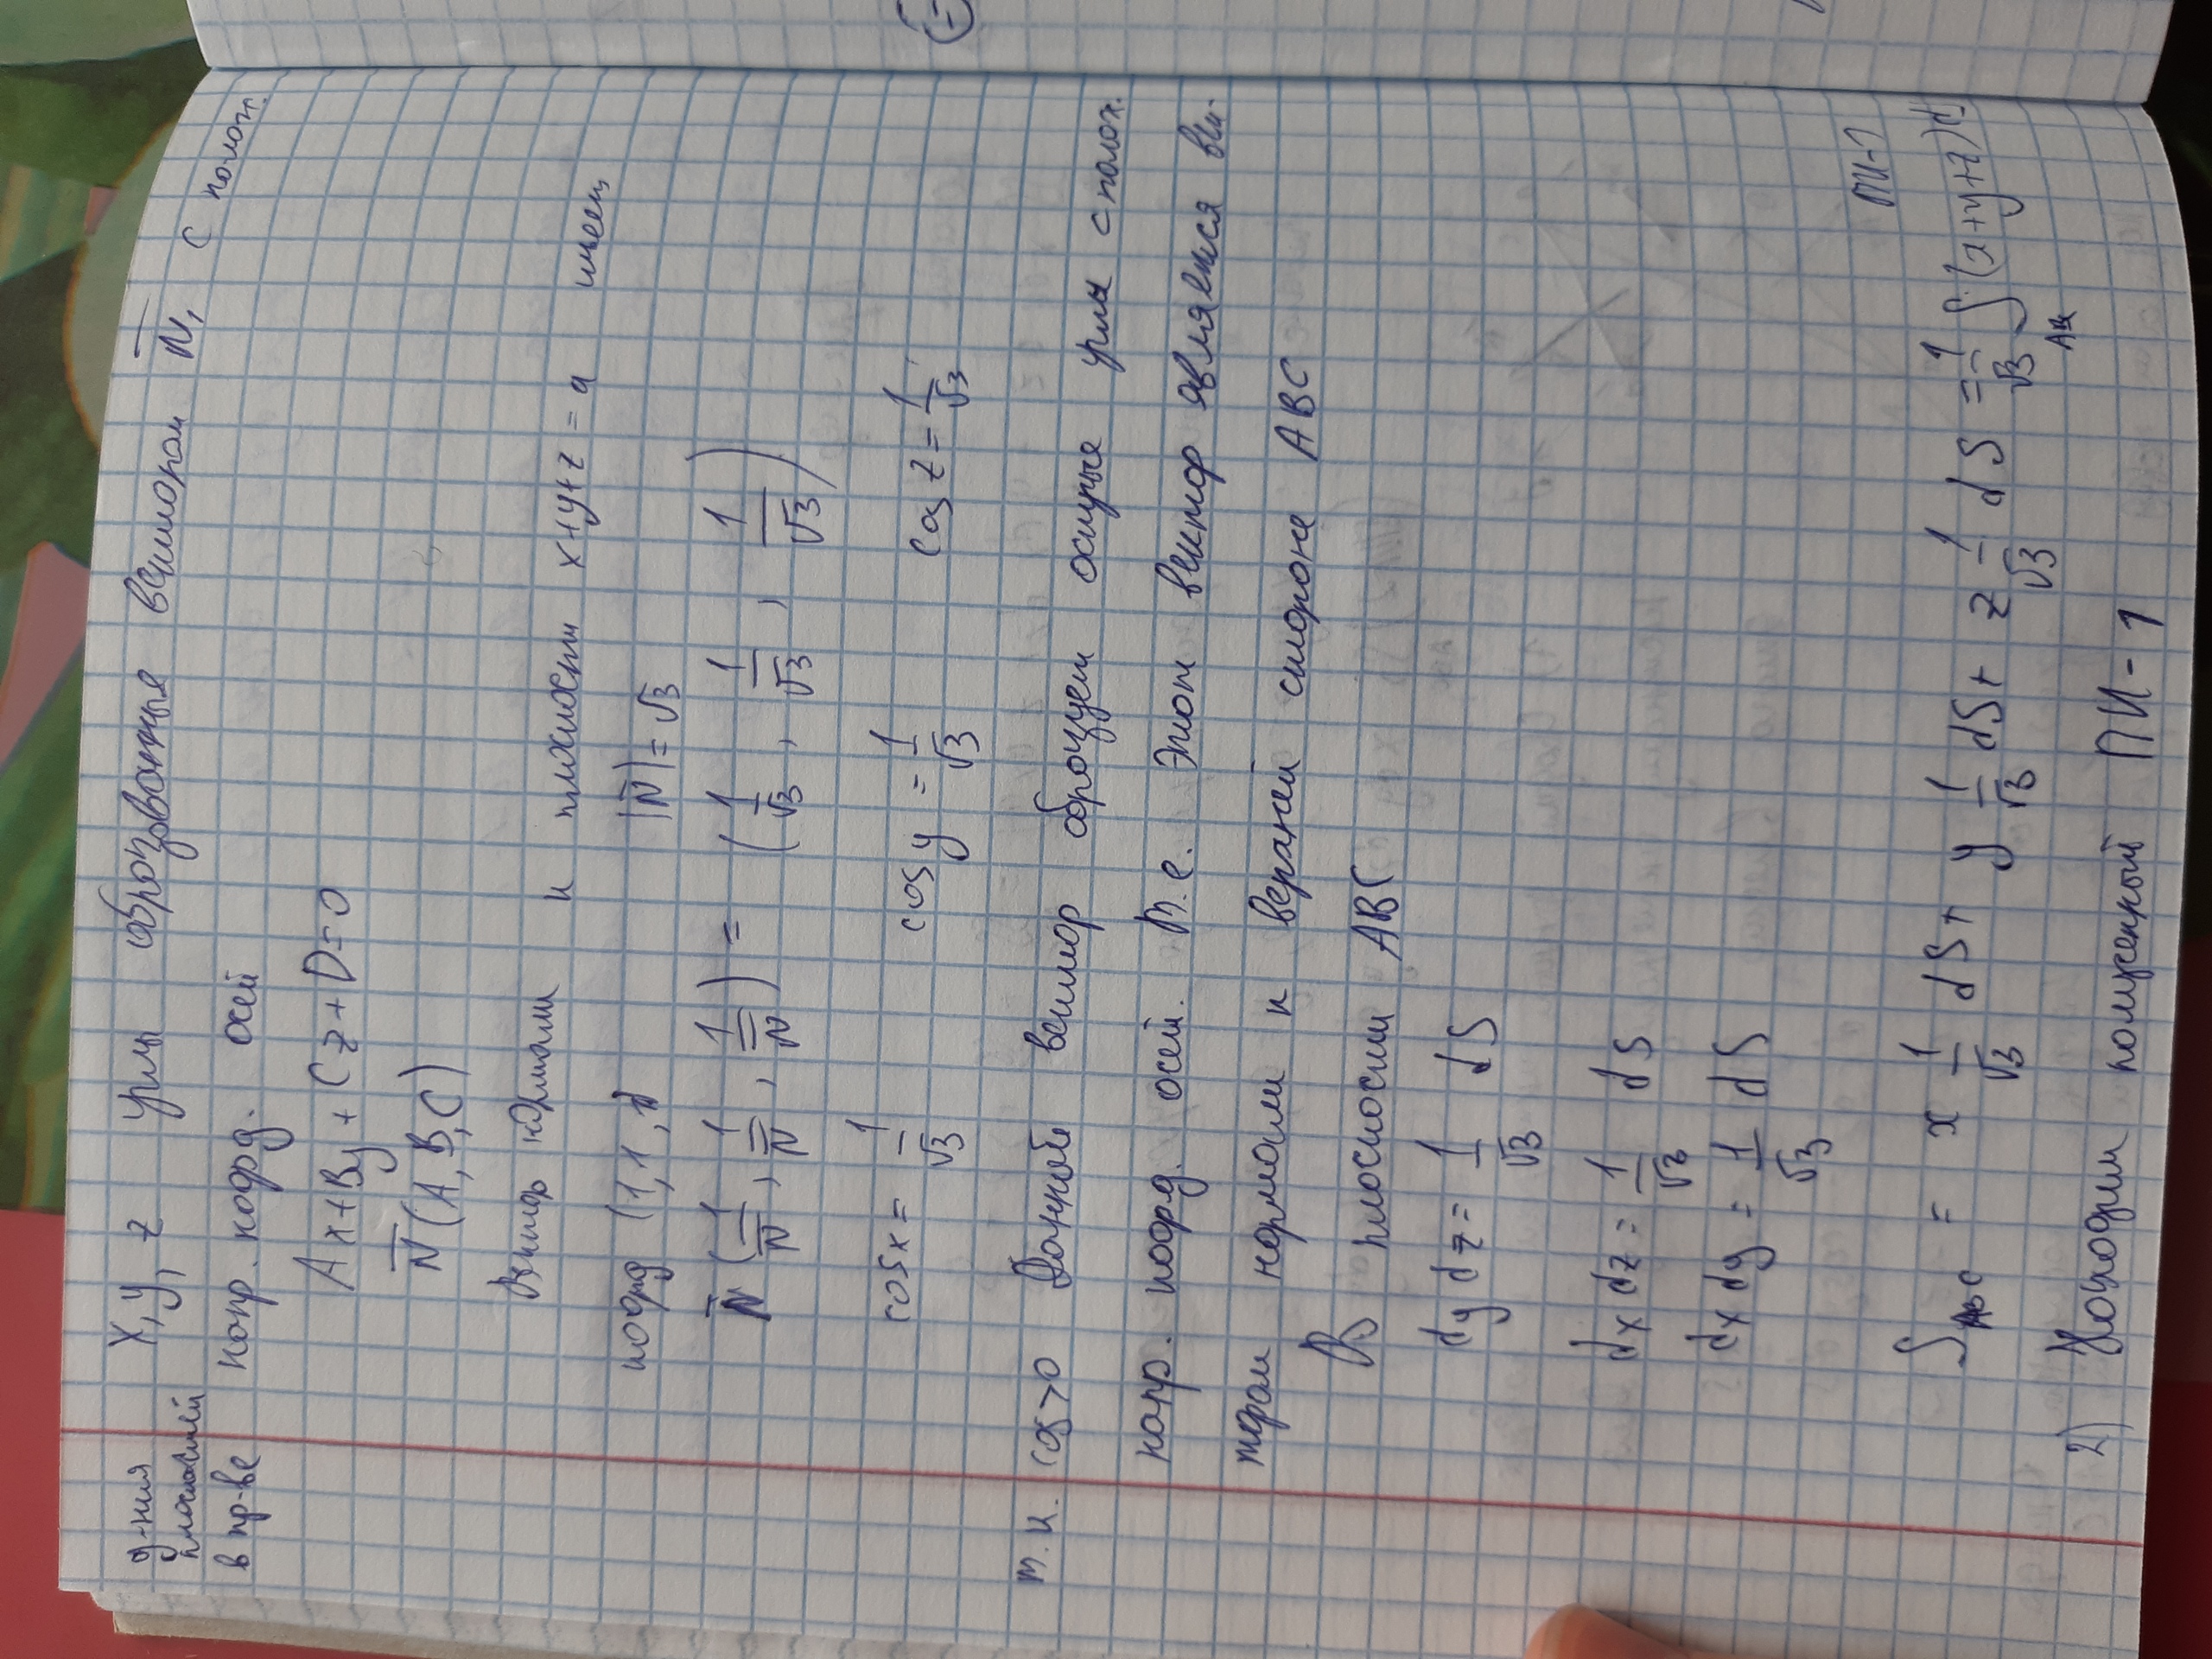 у-ния
плоскостей
в пр-ве
X, y, z углы образованные вектором N̅, с полож.
напр. коорд. осей
Ax+By+Cz+D=0
N̅(A,B,C)
Вектор нормали к плоскости x+y+z=a имеет
коорд (1,1,1) |N̅|=√3
N̅(1/N̅, 1/N̅, 1/N̅) = (1/√3, 1/√3, 1/√3)
cosx = 1/√3 cosy = 1/√3 cosz = 1/√3
т.к. cos>0 Данный вектор образует острые углы с полож.
напр. коорд. осей. Т.е. этот вектор является век-
тором нормали к верхней стороне ABC
В плоскости ABC
dydz = 1/√3 dS
dxdz = 1/√3 dS
dxdy = 1/√3 dS
ПИ-1
∫ABC = x 1/√3 dS + y 1/√3 dS + z 1/√3 dS = 1/√3 ∫ (x+y+z)d
2) Находим полученный ПИ-1